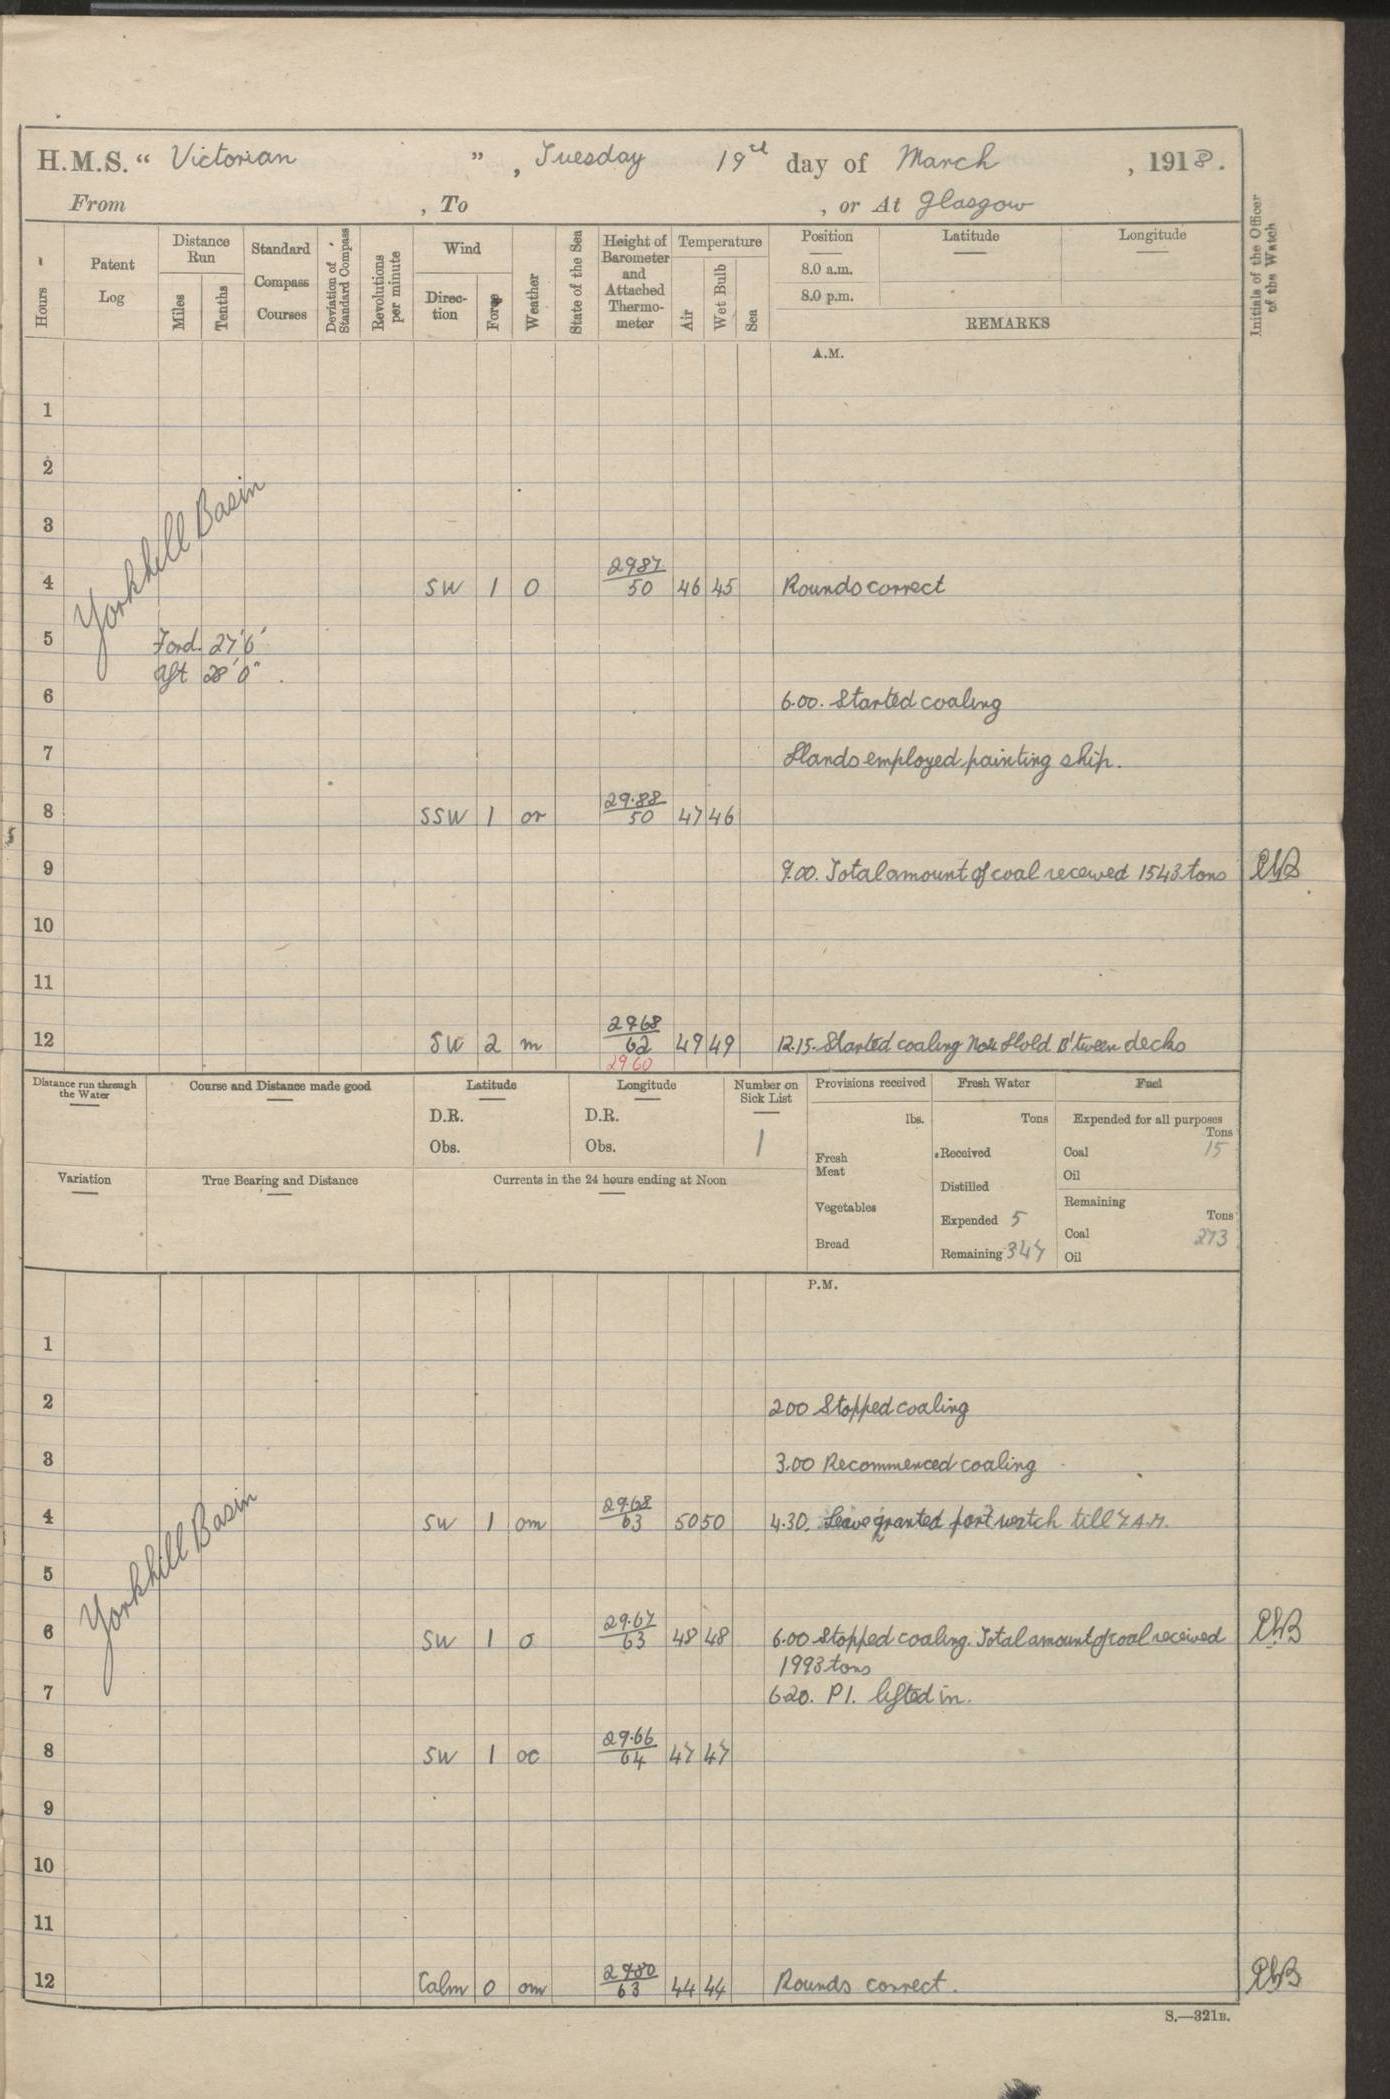 H.M.S. “ Victorian ” , Tuesday 19th day of March , 1918.
From , To , or At Glasgow
Hours
Patent Log
Distance Run
Miles
Tenths
Standard Compass Courses
Deviation of Standard Compass
Revolutions per minute
Wind
Direc-tion
Force
Weather
State of the Sea
Height of Barometer and Attached Thermo-meter
Temperature
Air
Wet Bulb
Sea
Position
Latitude
Longitude
8.0 a.m.
8.0 p.m.
REMARKS
Initials of the Officer of the Watch
A.M.
1
2
3
Yorkhill Basin
4 SW 1 O 2987/50 46 45 Rounds correct
5 Ford. 27'6"
Aft 28'0".
6 6.00. Started coaling
7 Hands employed painting ship.
8 SSW 1 or 29.88/50 47 46
9 9.00. Total amount of coal received 1543 tons
10
11
12 SW 2 m 2968/62 49 49 12.15. Started coaling Hold B'tween decks
2960
Distance run through the Water
Course and Distance made good
Latitude
D.R.
Obs.
Longitude
D.R.
Obs.
Number on Sick List
1
Provisions received
lbs.
Fresh Meat
Vegetables
Bread
Fresh Water
Tons
Received
Distilled
Expended 5
Remaining 347
Fuel
Expended for all purposes
Tons
Coal 15
Oil
Remaining
Tons
Coal 273
Oil
Variation
True Bearing and Distance
Currents in the 24 hours ending at Noon
P.M.
1
2 200 Stopped coaling
3 3.00 Recommenced coaling
4 SW 1 om 2968/63 50 50 4.30. Leave granted port watch till 7 A.M.
Yorkhill Basin
5
6 SW 1 o 29.67/63 48 48 6.00 Stopped coaling. Total amount of coal received
1993 tons
7 6.20. P1. lifted in.
8 SW 1 oc 29.66/64 47 47
9
10
11
12 Calm 0 om 2980/63 44 44 Rounds correct.
S.—321B.